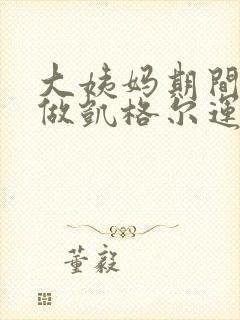 大姨妈期間
做凱格尔運
董毅